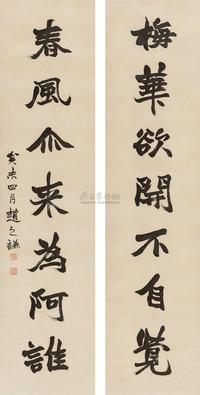 梅華欲開不自覺
春風尒来為阿誰
癸未四月趙之謙